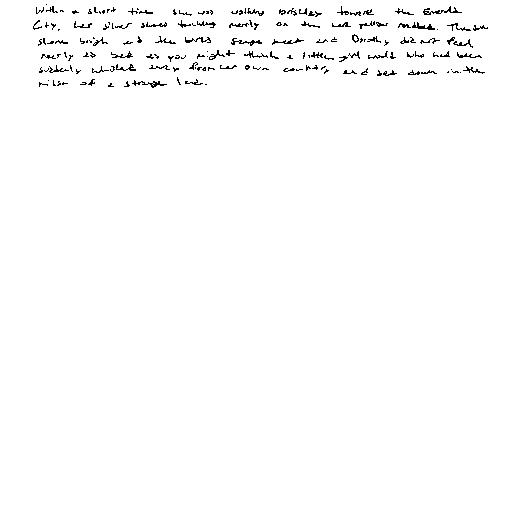 Within a short time she was walking briskley toward the Emerald
City, her silver shoes tinkling merrily on the hard yellow roadbed. The sun
shone brigh and the birds sangs sweet and Dorothy did not feel
nearly as bad as you might think a little girl would who had been
suddenly whisked away from her own country and set down in the
midst of a strange land.